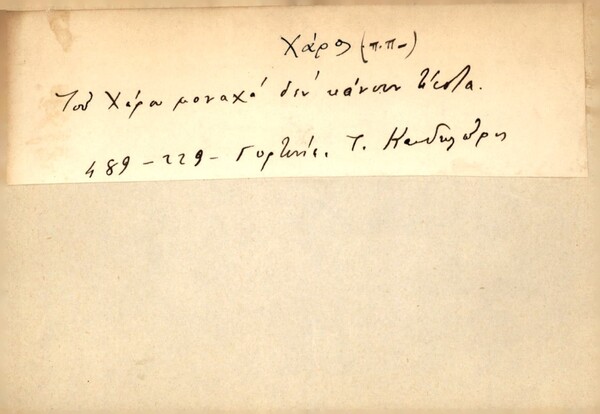 Χάρος (π.π.-)
Τοῦ Χάρου μοναχά δέν κάνουν
489 - 229 - Γορτυνία. Τ. Κανδηλῶρος